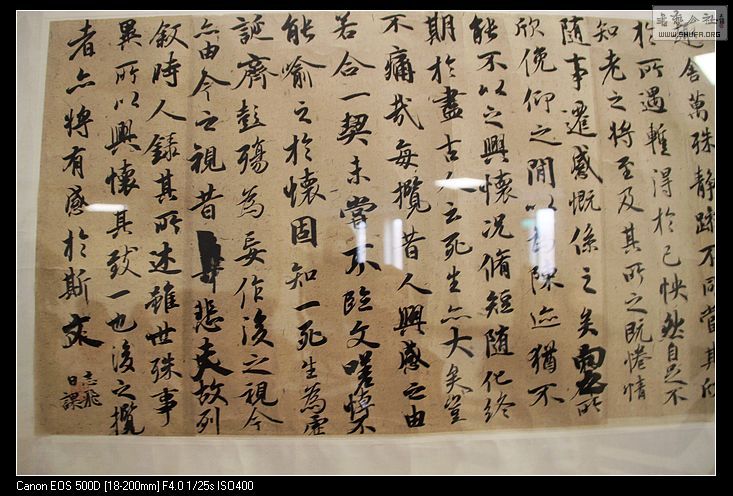 書藝公社
WWW.SHUFA.ORG
舍萬殊静躁不同當其
於所遇暫得於己怏然自足不
知老之將至及其所之既惓情
隨事遷感慨係之矣向之所
欣俛仰之間以為陳迹猶不
能不以之興懷况脩短随化終
期於盡古人云死生亦大矣豈
不痛哉每攬昔人興感之由
若合一契未嘗不臨文嗟悼不
能喻之於懷固知一死生為虛
誕齊彭殤為妄作後之視今
亦由今之視昔悲夫故列
叙時人錄其所述雖世殊事
異所以興懷其致一也後之攬
者亦將有感於斯文
志飛
日課
Canon EOS 500D [18-200mm] F4.0 1/25s ISO400